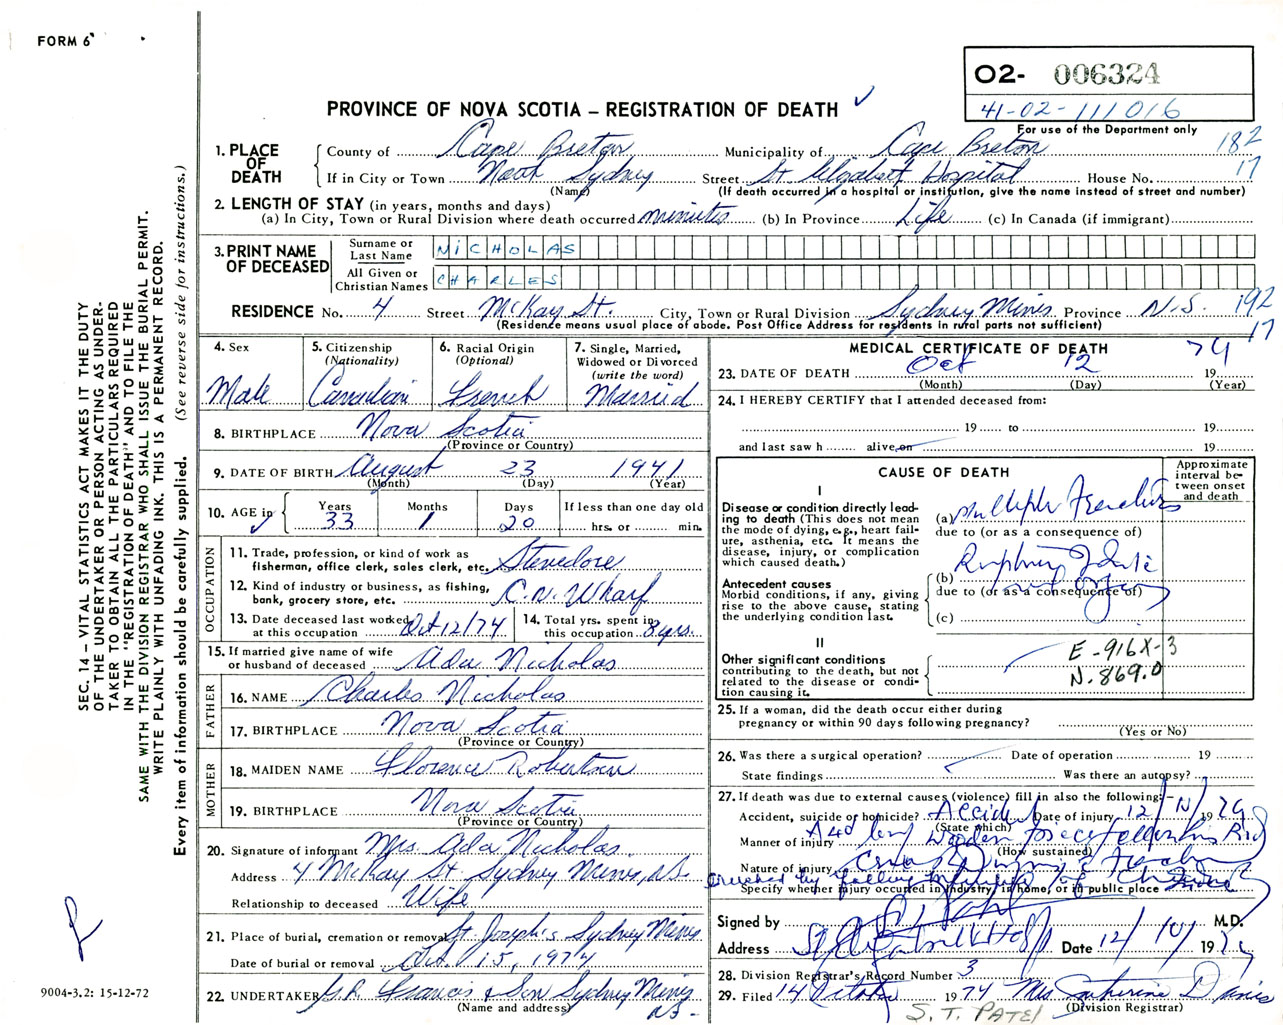 FORM 6
O2- 006324
41-02-111016
PROVINCE OF NOVA SCOTIA – REGISTRATION OF DEATH ✓
For use of the Department only
182
17
1. PLACE OF DEATH
County of Cape Breton Municipality of Cape Breton
If in City or Town North Sydney Street St Elizabeth Hospital House No.
(Name) (If death occurred in a hospital or institution, give the name instead of street and number)
2. LENGTH OF STAY (in years, months and days)
(a) In City, Town or Rural Division where death occurred minutes (b) In Province Life (c) In Canada (if immigrant)
3. PRINT NAME OF DECEASED
Surname or Last Name NICHOLAS
All Given or Christian Names CHARLES
RESIDENCE No. 4 Street McKay St. City, Town or Rural Division Sydney Mines Province N.S. 192
17
(Residence means usual place of abode. Post Office Address for residents in rural parts not sufficient)
4. Sex Male
5. Citizenship (Nationality) Canadian
6. Racial Origin (Optional) French
7. Single, Married, Widowed or Divorced (write the word) Married
8. BIRTHPLACE Nova Scotia
(Province or Country)
9. DATE OF BIRTH August 23 1941
(Month) (Day) (Year)
10. AGE in ✓ Years 33 Months 1 Days 20 If less than one day old hrs. or min.
OCCUPATION
11. Trade, profession, or kind of work as fisherman, office clerk, sales clerk, etc. Stevedore
12. Kind of industry or business, as fishing, bank, grocery store, etc. C.N. Wharf
13. Date deceased last worked at this occupation Oct 12/74
14. Total yrs. spent in this occupation 8 yrs.
15. If married give name of wife or husband of deceased Ada Nicholas
FATHER
16. NAME Charles Nicholas
17. BIRTHPLACE Nova Scotia
(Province or Country)
MOTHER
18. MAIDEN NAME Florence Robertson
19. BIRTHPLACE Nova Scotia
(Province or Country)
20. Signature of informant Mrs. Ada Nicholas.
Address 4 McKay St. Sydney Mines, N.S.
Relationship to deceased Wife
21. Place of burial, cremation or removal St. Joseph's Sydney Mines
Date of burial or removal Oct. 15, 1974
22. UNDERTAKER Francis & Son Sydney Mines
N.S.
(Name and address)
MEDICAL CERTIFICATE OF DEATH
23. DATE OF DEATH Oct 12 19 74
(Month) (Day) (Year)
24. I HEREBY CERTIFY that I attended deceased from:
19 to 19
and last saw h alive on 19
CAUSE OF DEATH
Approximate interval between onset and death
I
Disease or condition directly leading to death (This does not mean the mode of dying, e.g., heart failure, asthenia, etc. It means the disease, injury, or complication which caused death.)
(a) multiple Fractures
due to (or as a consequence of)
Antecedent causes
Morbid conditions, if any, giving rise to the above cause, stating the underlying condition last.
(b)
due to (or as a consequence of)
(c)
II
Other significant conditions contributing to the death, but not related to the disease or condition causing it.
E-916X-3
N.869.0
25. If a woman, did the death occur either during pregnancy or within 90 days following pregnancy?
(Yes or No)
26. Was there a surgical operation? Date of operation 19
State findings Was there an autopsy?
27. If death was due to external causes (violence) fill in also the following:–
Accident, suicide or homicide? Accident Date of injury 12/ 19 74
(State which)
Manner of injury
(How sustained)
Nature of injury
crushed by falling
Specify whether injury occurred in industry, in home, or in public place
Signed by M.D.
Address Date 12/10/ 19 74
28. Division Registrar's Record Number 3
29. Filed 14 October 19 74 Mrs Catherine Davis
(Division Registrar)
S.T. PATEL
SEC. 14 – VITAL STATISTICS ACT MAKES IT THE DUTY
OF THE UNDERTAKER OR PERSON ACTING AS UNDER-
TAKER TO OBTAIN ALL THE PARTICULARS REQUIRED
IN THE "REGISTRATION OF DEATH" AND TO FILE THE
SAME WITH THE DIVISION REGISTRAR WHO SHALL ISSUE THE BURIAL PERMIT.
WRITE PLAINLY WITH UNFADING INK. THIS IS A PERMANENT RECORD.
Every item of information should be carefully supplied. (See reverse side for instructions.)
9004-3.2: 15-12-72